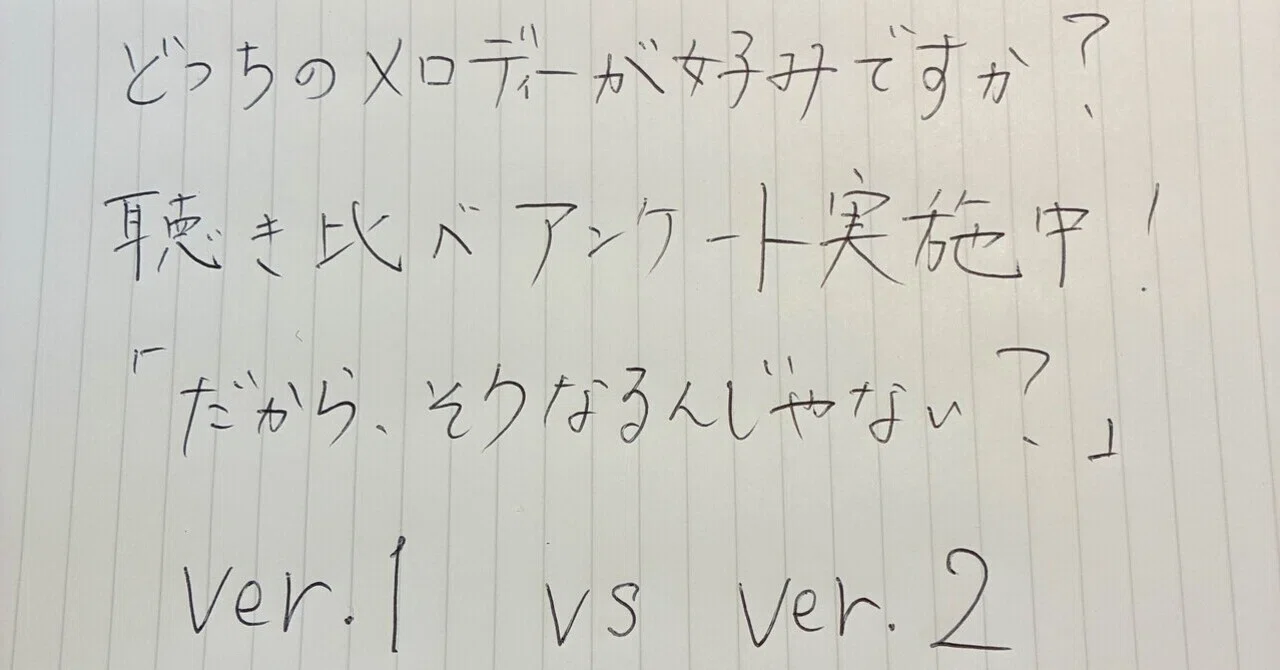 どっちのメロディーが好みですか?
聴き比べアンケート実施中!
「だから、そうなるんじゃない?」
ver.1 vs ver.2